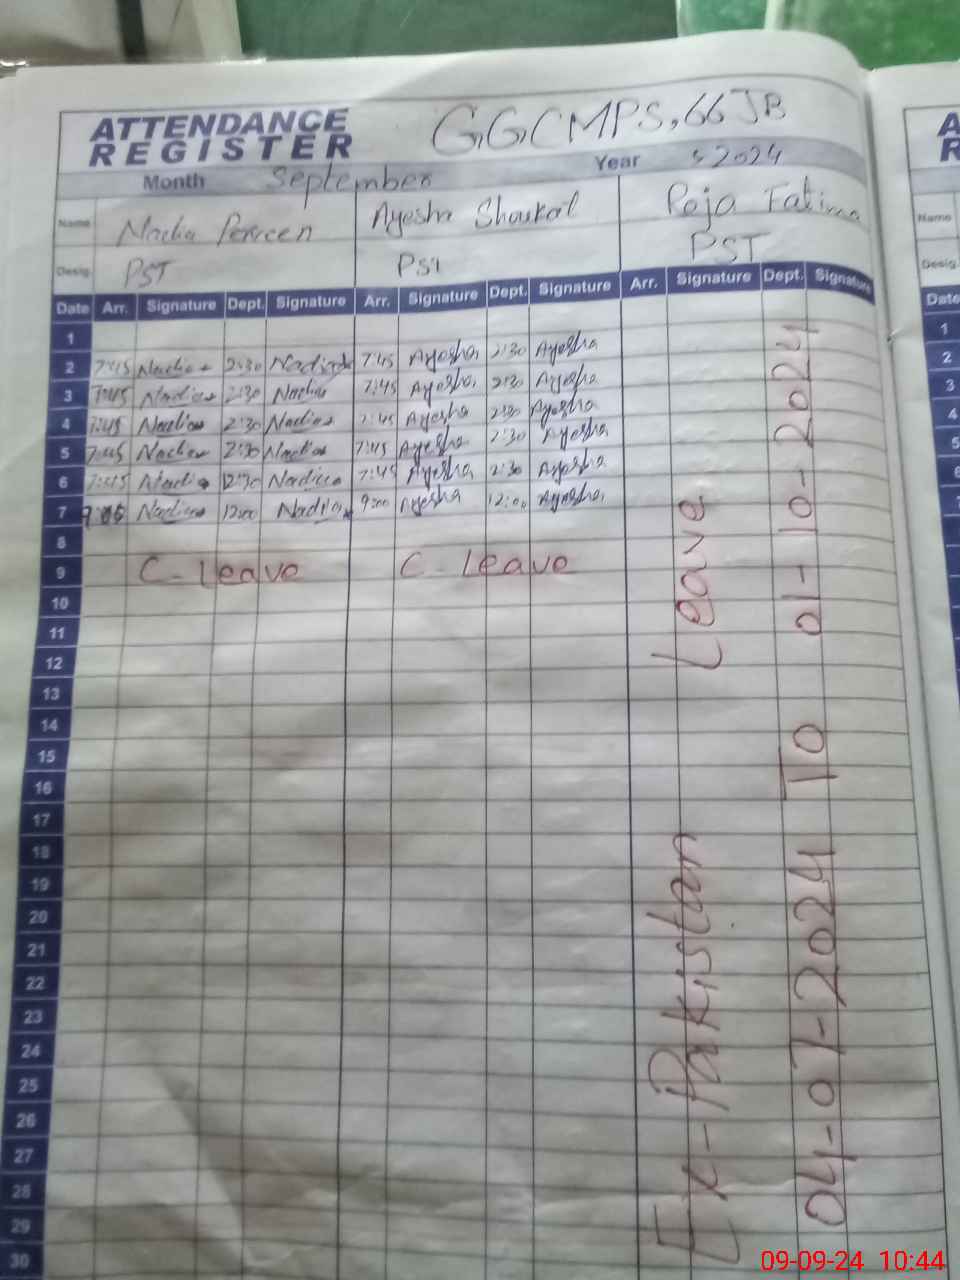 ATTENDANCE REGISTER G,G,CMPS,66JB
Month September Year 2024
Name Nadia Perveen Ayesha Shoukat Roja Fatima
Desig. PST PST PST
Date Arr. Signature Dept. Signature Arr. Signature Dept. Signature Arr. Signature Dept. Signature
1
2 7:45 Nadia 2:30 Nadia 7:45 Ayesha 2:30 Ayesha
3 7:45 Nadia 2:30 Nadia 7:45 Ayesha 2:30 Ayesha
4 7:45 Nadia 2:30 Nadia 7:45 Ayesha 2:30 Ayesha
5 7:45 Nadia 2:30 Nadia 7:45 Ayesha 2:30 Ayesha
6 7:45 Nadia 12:30 Nadia 7:45 Ayesha 2:30 Ayesha
7 Nadia 12:00 Nadia 9:00 Ayesha 12:00 Ayesha
8
9 C-Leave C Leave
10
11
12
13
14
15
16
17
18
19
20
21
22
23
24
25
26
27
28
29
30
Ex-Pakistan Leave
04-07-2024 To 01-10-2024
A
R
Name
Desig.
Date
1
2
3
4
5
6
7
09-09-24 10:44